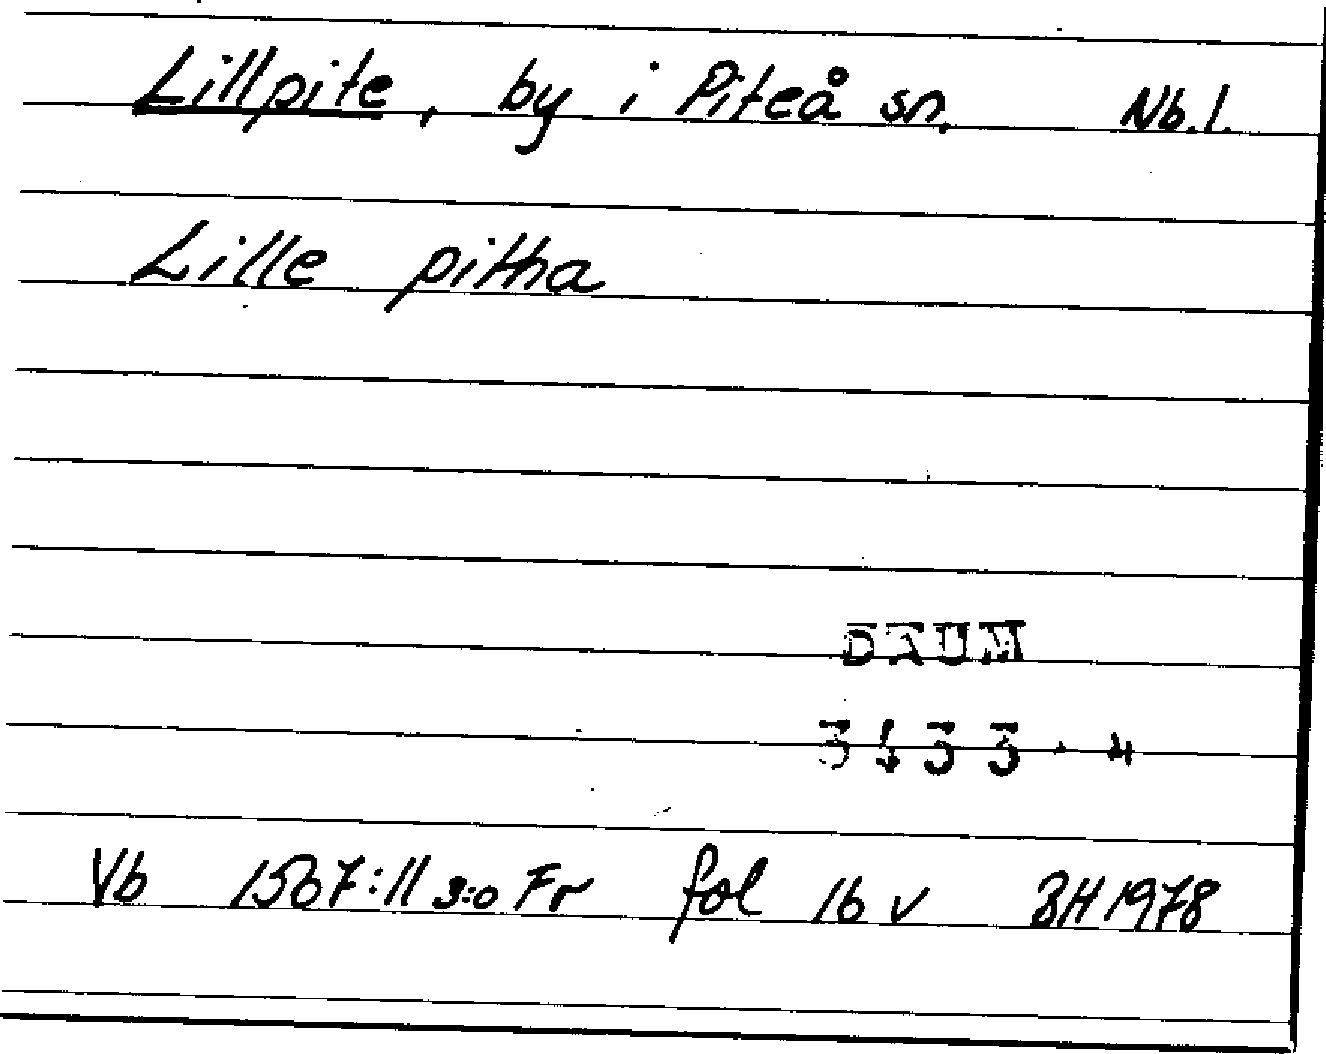 Lillpite, by i Piteå sn. Nb.l.
Lille pittha
DAUM
3433 - 4
Vb 1567:11 9:o Fr fol 16 v BH 1978